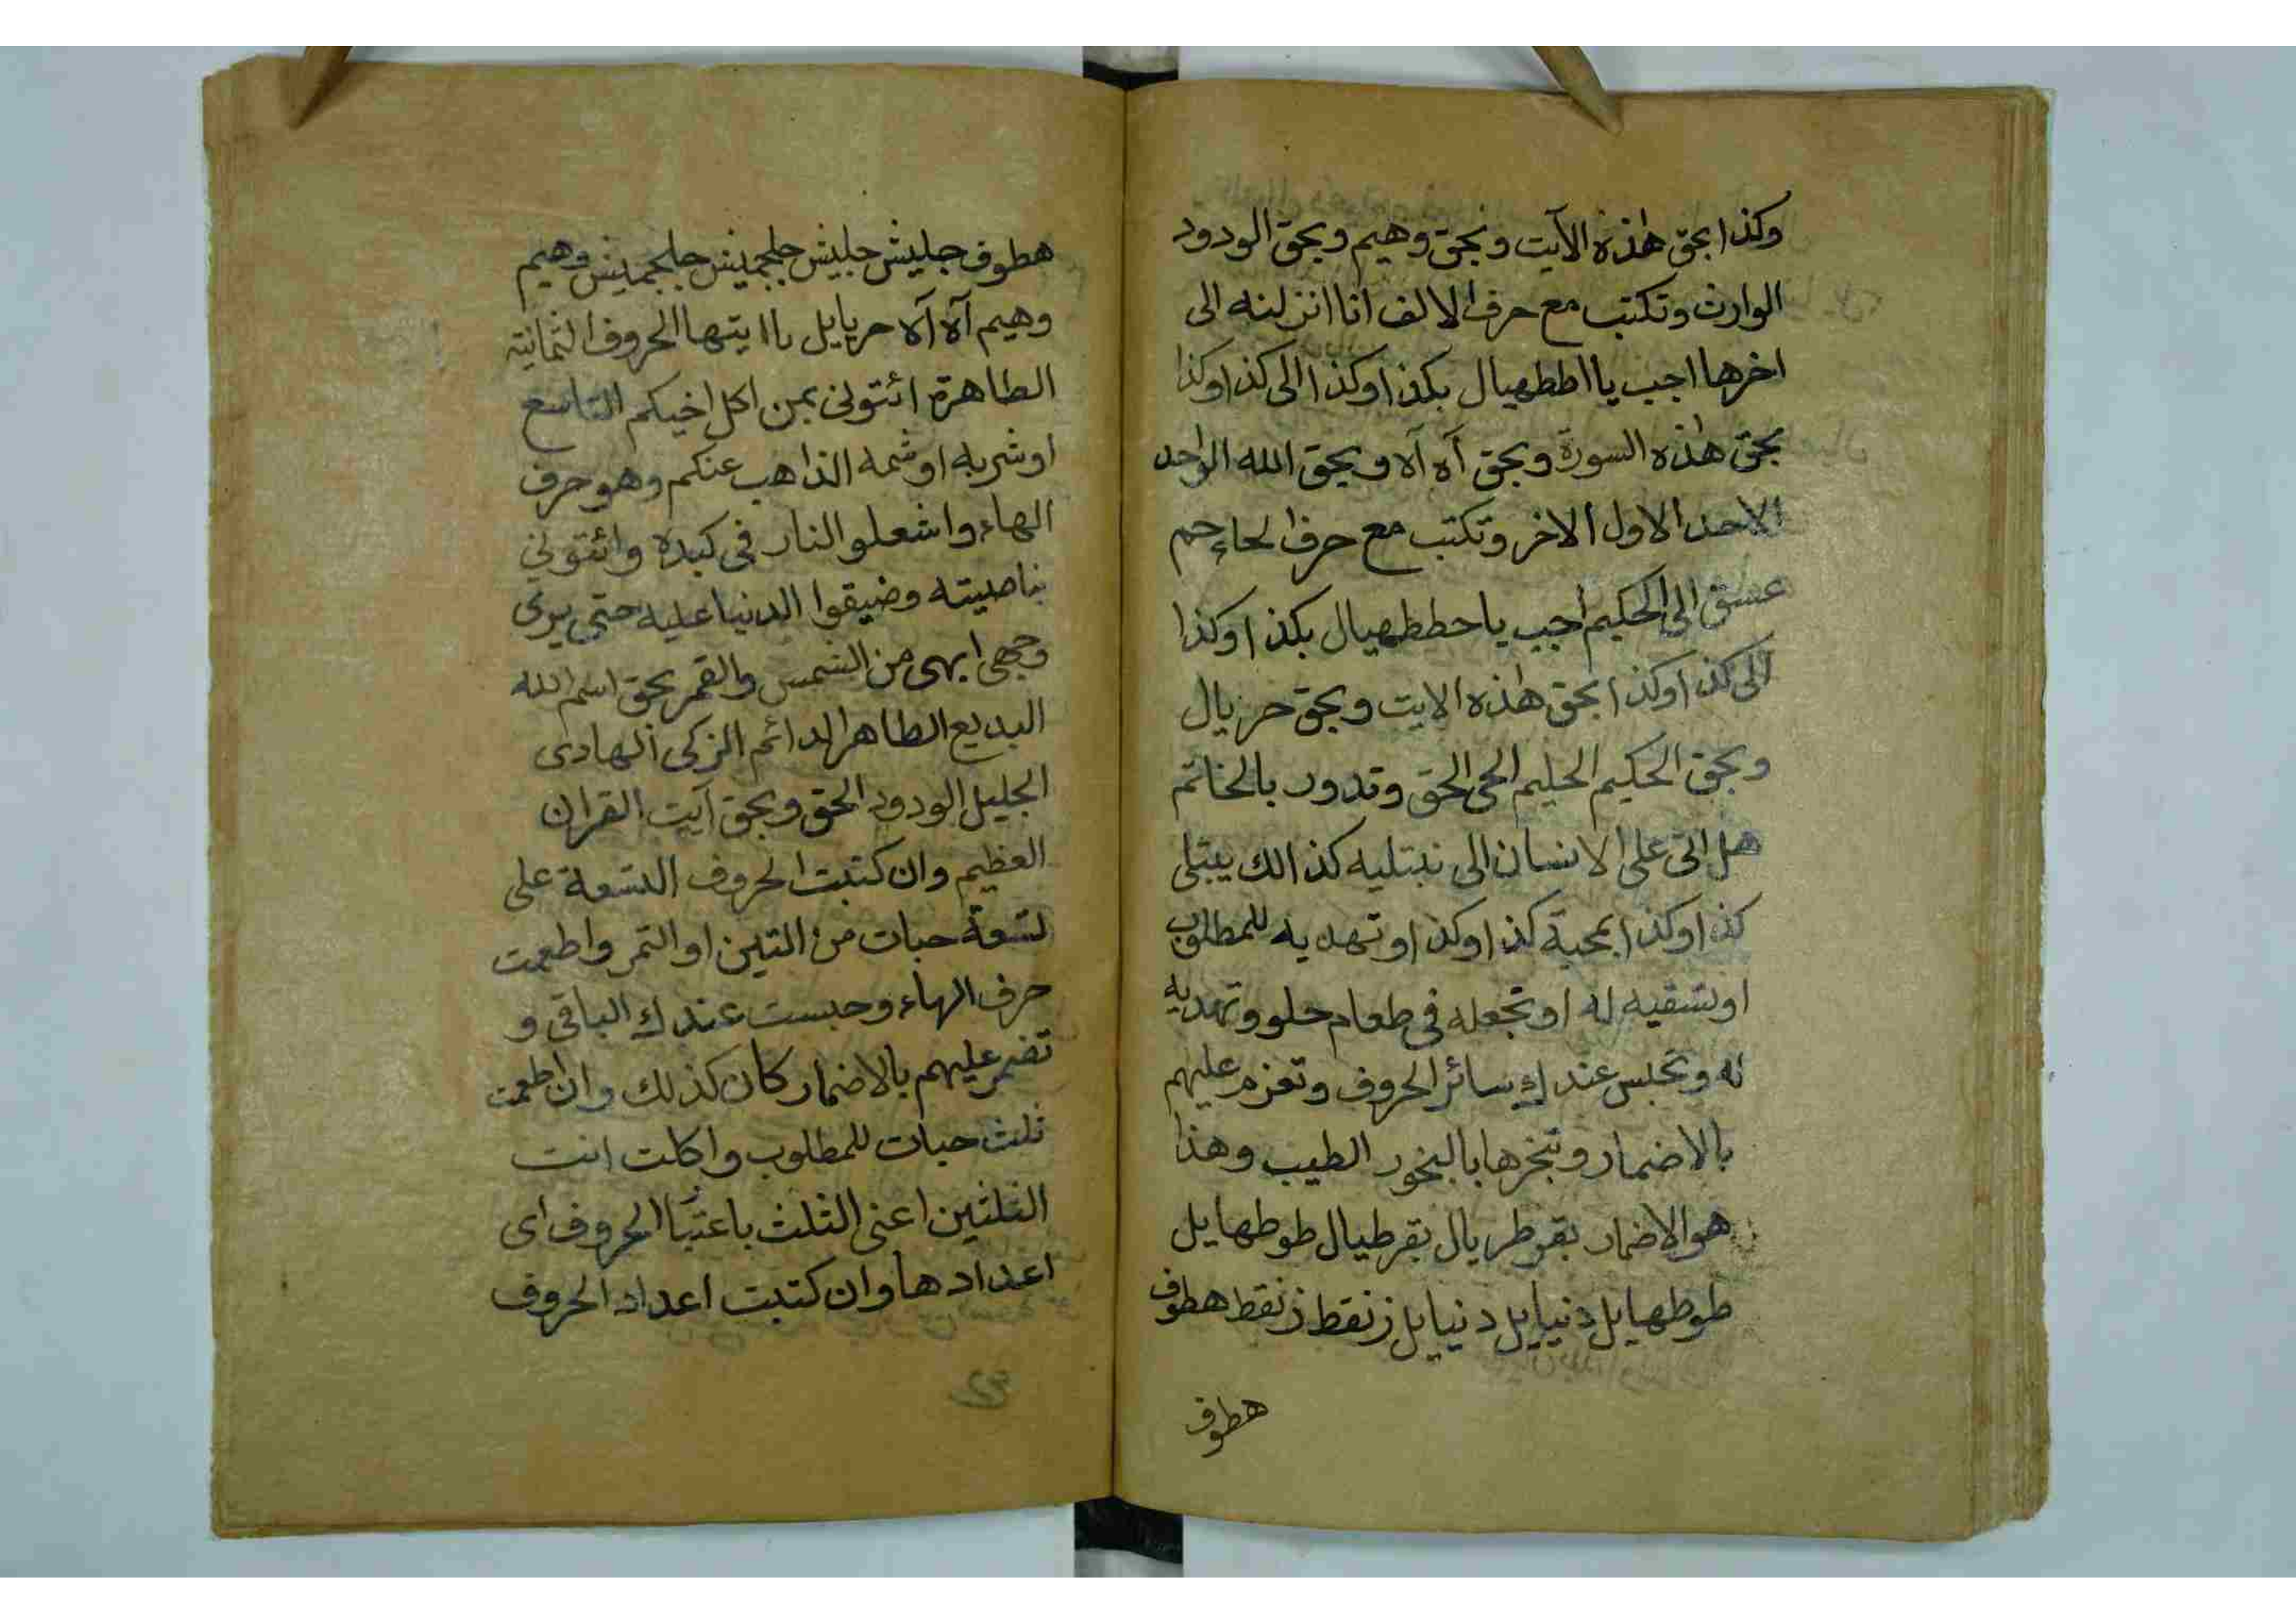 وكذا بحق هٰذه الآيت وبحق وهيم وبحق الودود
الوارث وتكتب مع حرف الالف انا انزلنه الى
اخرها اجب يا اططهيال بكذا وكذا الى كذا وكذا
بحق هٰذه السورة وبحق آه آه وبحق الله الواحد
الاحد الاول الاخر وتكتب مع حرف الحاء حم
عسق الى الحكيم اجب يا حططهيال بكذا وكذا
الى كذا وكذا بحق هٰذه الايت وبحق حزيال
وبحق الحكيم الحليم الحى الحق وتدور بالخاتم
هل اتى على الانسان الى نبتليه كذالك يبتلى
كذا وكذا بمحبة كذا وكذا وتهديه للمطلوب
او تسقيه له او تجعله فى طعام حلو وتهديه
له وتحبس عندك سائر الحروف وتعزم عليهم
بالاضمار وتبخرها بالبخور الطيب وهذا
هو الاضمار بقرطريال بقرطيال طوطهايل
طوطهايل دنيايل دنيايل زنقط زنقط هطوف
هطوف
هطوف جليش جليش جلجميش جلجميش وهيم
وهيم آه آه حريايل ياايتها الحروف الثمانية
الطاهرة ائتونى بمن اكل اخيكم التاسع
او شربه او شمه الذاهب عنكم وهو حرف
الهاء واشعلو النار فى كبده وائتونى
بناصيته وضيقوا الدنيا عليه حتى يرى
وجهى ابهى من الشمس والقمر بحق اسم الله
البديع الطاهر الدائم الزكى الهادى
الجليل الودود الحق وبحق آيت القران
العظيم وان كتبت الحروف التسعة على
تسعة حبات من التين او التمر واطعمت
حرف الهاء وحبست عندك الباقى و
تضمر عليهم بالاضمار كان كذلك وان اطعمت
ثلث حبات للمطلوب واكلت انت
الثلثين اعنى الثلث باعتبا الحروف اى
اعدادها وان كتبت اعداد الحروف